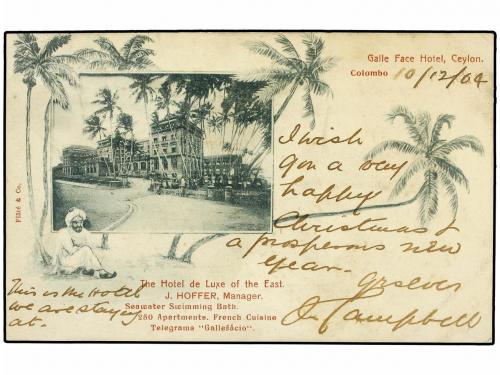 Galle Face Hotel, Ceylon.
Colombo 10/12/04
I wish
you a very
happy
Christmas &
a prosperous new
year.
yrs ever
Campbell
This is the Hotel
we are staying
at.
Plâté & Co.
The Hotel de Luxe of the East.
J. HOFFER, Manager.
Seawater Swimming Bath.
250 Apartments. French Cuisine
Telegrams "Gallefácio".